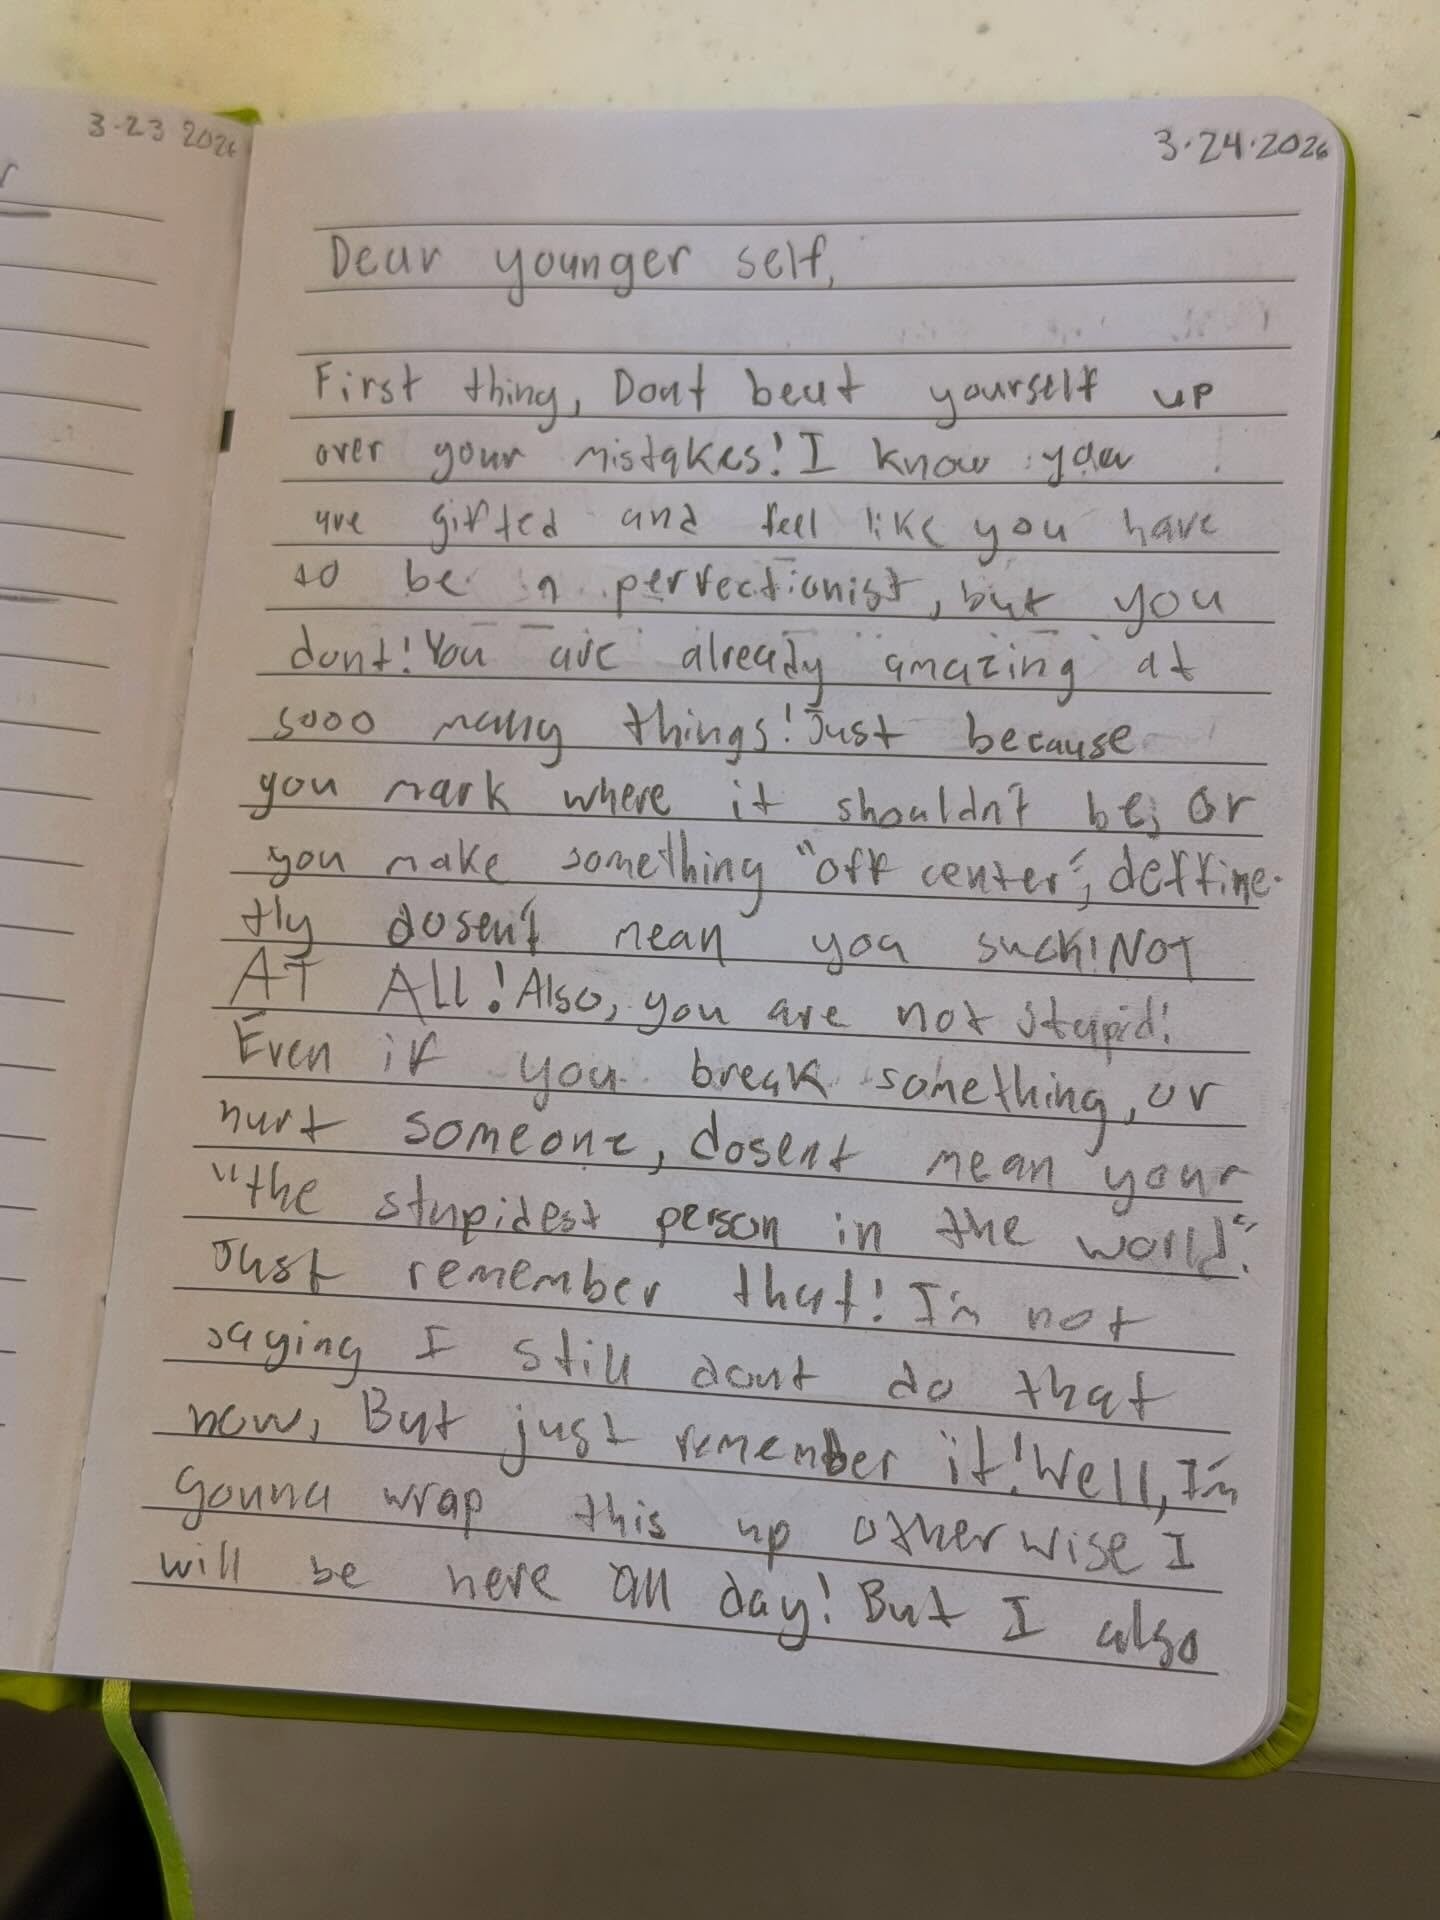 3-23 2026
r
3.24.2026
Dear younger self,
First thing, Dont beat yourself up
over your mistakes! I know you
are gifted and feel like you have
to be a perfectionist, but you
dont! You are already amazing at
sooo many things! Just because
you mark where it shouldn't be, or
you make something "off center", deffine-
tly dosen't mean you suck! NOT
AT All! Also, you are not stupid!
Even if you break something, or
hurt someone, dosent mean your
"the stupidest person in the world".
Just remember that! I'm not
saying I still dont do that
now, But just remember it! Well, I'm
gonna wrap this up otherwise I
will be here all day! But I also